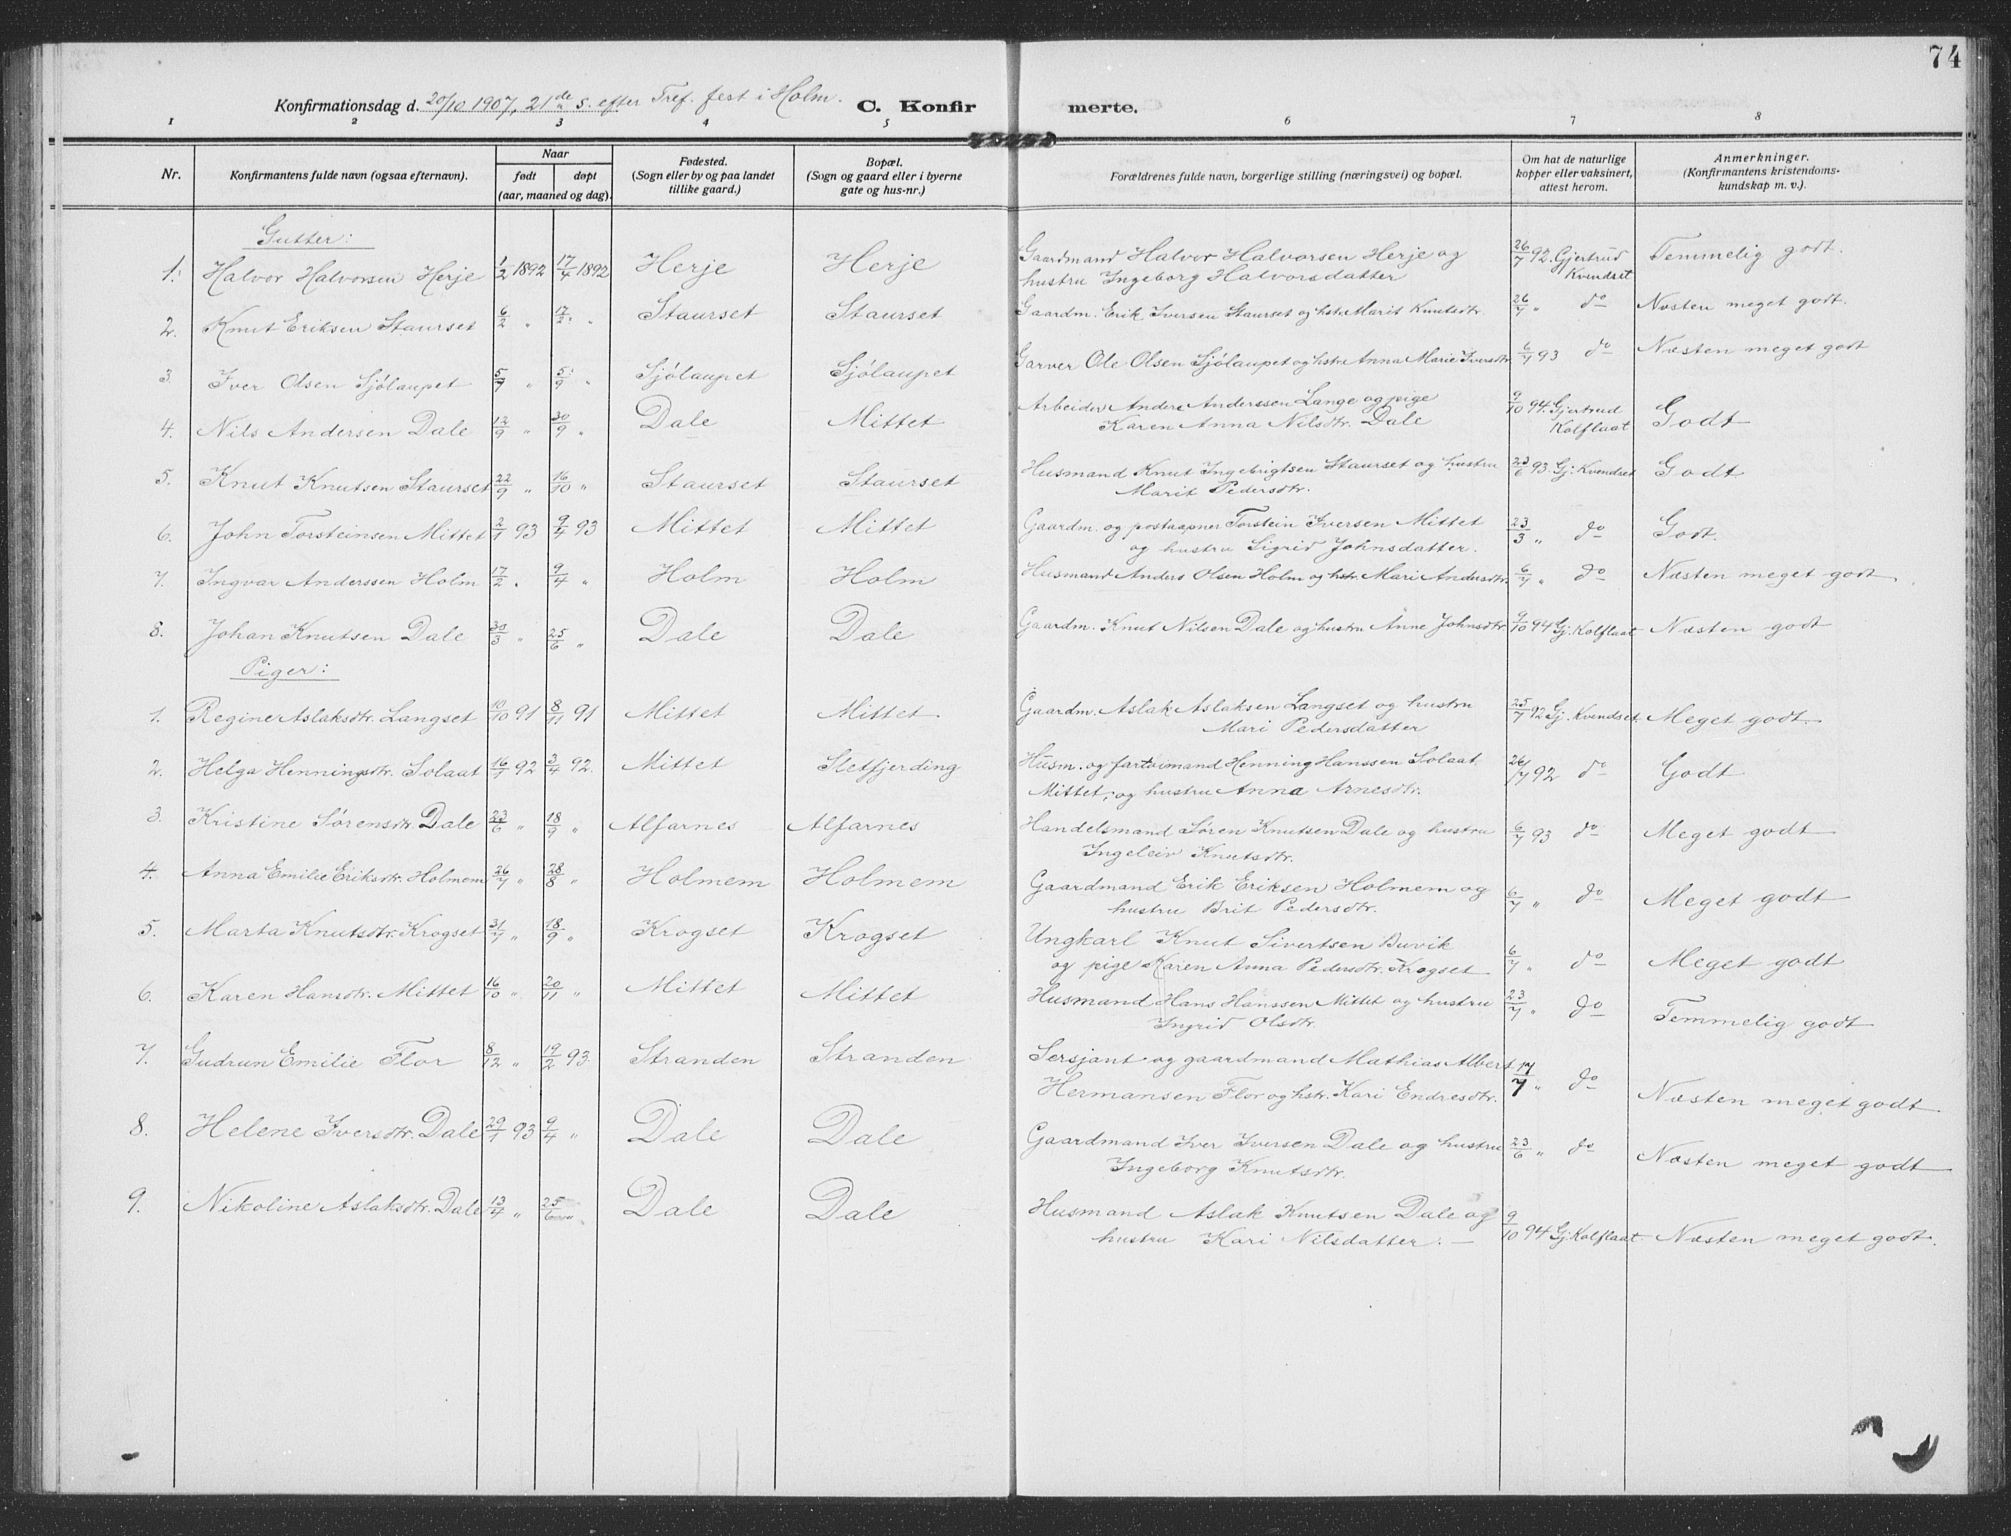 74
Konfirmationsdag d. 20/10 1907, 21de s. efter Tref. fest i Holm. C. Konfirmerte.
1 2 3 4 5 6 7 8
Nr. Konfirmantens fulde navn (ogsaa efternavn). Naar født døpt (aar, maaned og dag). Fødested. (Sogn eller by og paa landet tillike gaard.) Bopæl. (Sogn og gaard eller i byerne gate og hus-nr.) Forældrenes fulde navn, borgerlige stilling (næringsvei) og bopæl. Om hat de naturlige kopper eller vaksinert, attest herom. Anmerkninger. (Konfirmantens kristendomskundskap m. v.).
Gutter:
1. Halvor Halvorsen Herje 1/2 1892 17/4 1892 Herje Herje Gaardmand Halvor Halvorsen Herje og hustru Ingeborg Halvorsdatter 26/7 92. Gjertrud Kvendset Temmelig godt.
2. Knut Eriksen Staurset 6/2 " 17/2 " Staurset Staurset Gaardm. Erik Iversen Staurset og hstr. Marit Knutsdtr. 26/7 " do Næsten meget godt.
3. Iver Olsen Sjølaupet 5/7 " 5/9 " Sjølaupet Sjølaupet Garver Ole Olsen Sjølaupet og hstr. Anna Marie Iversdtr. 6/7 93 do Næsten meget godt
4. Nils Andersen Dale 12/9 " 30/9 " Dale Mittet Arbeider Anders Anderssen Lange og pige Karen Anna Nilsdtr. Dale 9/10 94. Gjertrud Kolflaat Godt
5. Knut Knutsen Staurset 22/9 " 16/10 " Staurset Staurset Husmand Knut Ingebrigtsen Staurset og hustru Marit Pedersdtr. 23/6 93 Gj. Kvendset Godt
6. John Torsteinsen Mittet 2/1 93 9/4 93 Mittet Mittet Gaardm. og postaapner Torstein Iversen Mittet og hustru Sigrid Johnsdatter. 23/3 " do Godt.
7. Ingvar Anderssen Holm 17/2 " 9/4 " Holm Holm Husmand Anders Olsen Holm og hstr. Mari Andersdtr. 6/7 " do Næsten meget godt
8. Johan Knutsen Dale 30/3 " 25/6 " Dale Dale Gaardm. Knut Nilsen Dale og hustru Anne Johnsdtr 9/10 94 Gj. Kolflaat Næsten godt
Piger:
1. Regine Aslaksdtr. Langset 10/10 91 8/11 91 Mittet Mittet Gaardm. Aslak Aslaksen Langset og hustru Mari Pedersdatter 25/7 92 Gj. Kvendset. Meget godt.
2. Helga Henningsdtr. Solaat 16/1 92 3/4 92. Mittet Sletfjerding Husm. og fartøimand Henning Hanssen Solaat Mittet, og hustru Anna Arnesdtr. 26/7 92 do Godt
3. Kristine Sørensdtr. Dale 23/6 " 18/9 " Alfarnes Alfarnes Handelsmand Søren Knutsen Dale og hustru Ingeleiv Knutsdtr. 6/7 93 do Meget godt
4. Anna Emilie Eriksdtr. Holmem 26/7 " 28/8 " Holmem Holmem Gaardmand Erik Eriksen Holmem og hustru Brit Pedersdtr. 6/7 " do Meget godt
5. Marta Knutsdtr. Krogset 31/7 " 18/9 " Krogset Krogset Ungkarl Knut Sivertsen Buvik og pige Karen Anna Pedersdtr. Krogset 6/7 " do Meget godt
6. Karen Hansdtr. Mittet 16/10 " 20/11 " Mittet Mittet Husmand Hans Hanssen Mittet og hustru Ingrid Olsdtr. 23/7 " do Temmelig godt
7. Gudrun Emilie Flor 8/12 " 19/2 93 Stranden Stranden Sersjant og gaardmand Mathias Albert Hermansen Flor og hstr. Kari Endresdtr. 17/7 " do Næsten meget godt
8. Helene Iversdtr. Dale 29/1 93 9/4 " Dale Dale Gaardmand Iver Iversen Dale og hustru Ingeborg Knutsdtr. 23/6 " do Næsten meget godt
9. Nikoline Aslaksdtr. Dale 13/4 " 25/6 " Dale Dale Husmand Aslak Knutsen Dale og hustru Kari Nilsdatter. 9/10 94 Gj. Kolflaat. Næsten meget godt.